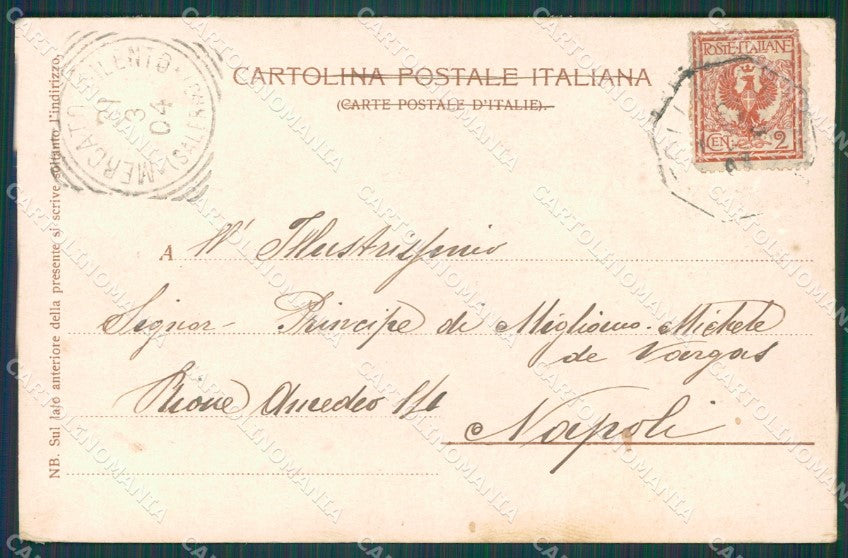 CARTOLINA POSTALE ITALIANA
(CARTE POSTALE D'ITALIE).
POSTE ITALIANE
CEN. 2
MERCATO CILENTO (SALERNO)
21
3
04
NB. Sul lato anteriore della presente si scrive soltanto l'indirizzo.
A Ill' Illustrissimo
Signor Principe di Migliano Michele
de Vargas
Rione Amedeo
Napoli
CARTOLINOMANIA